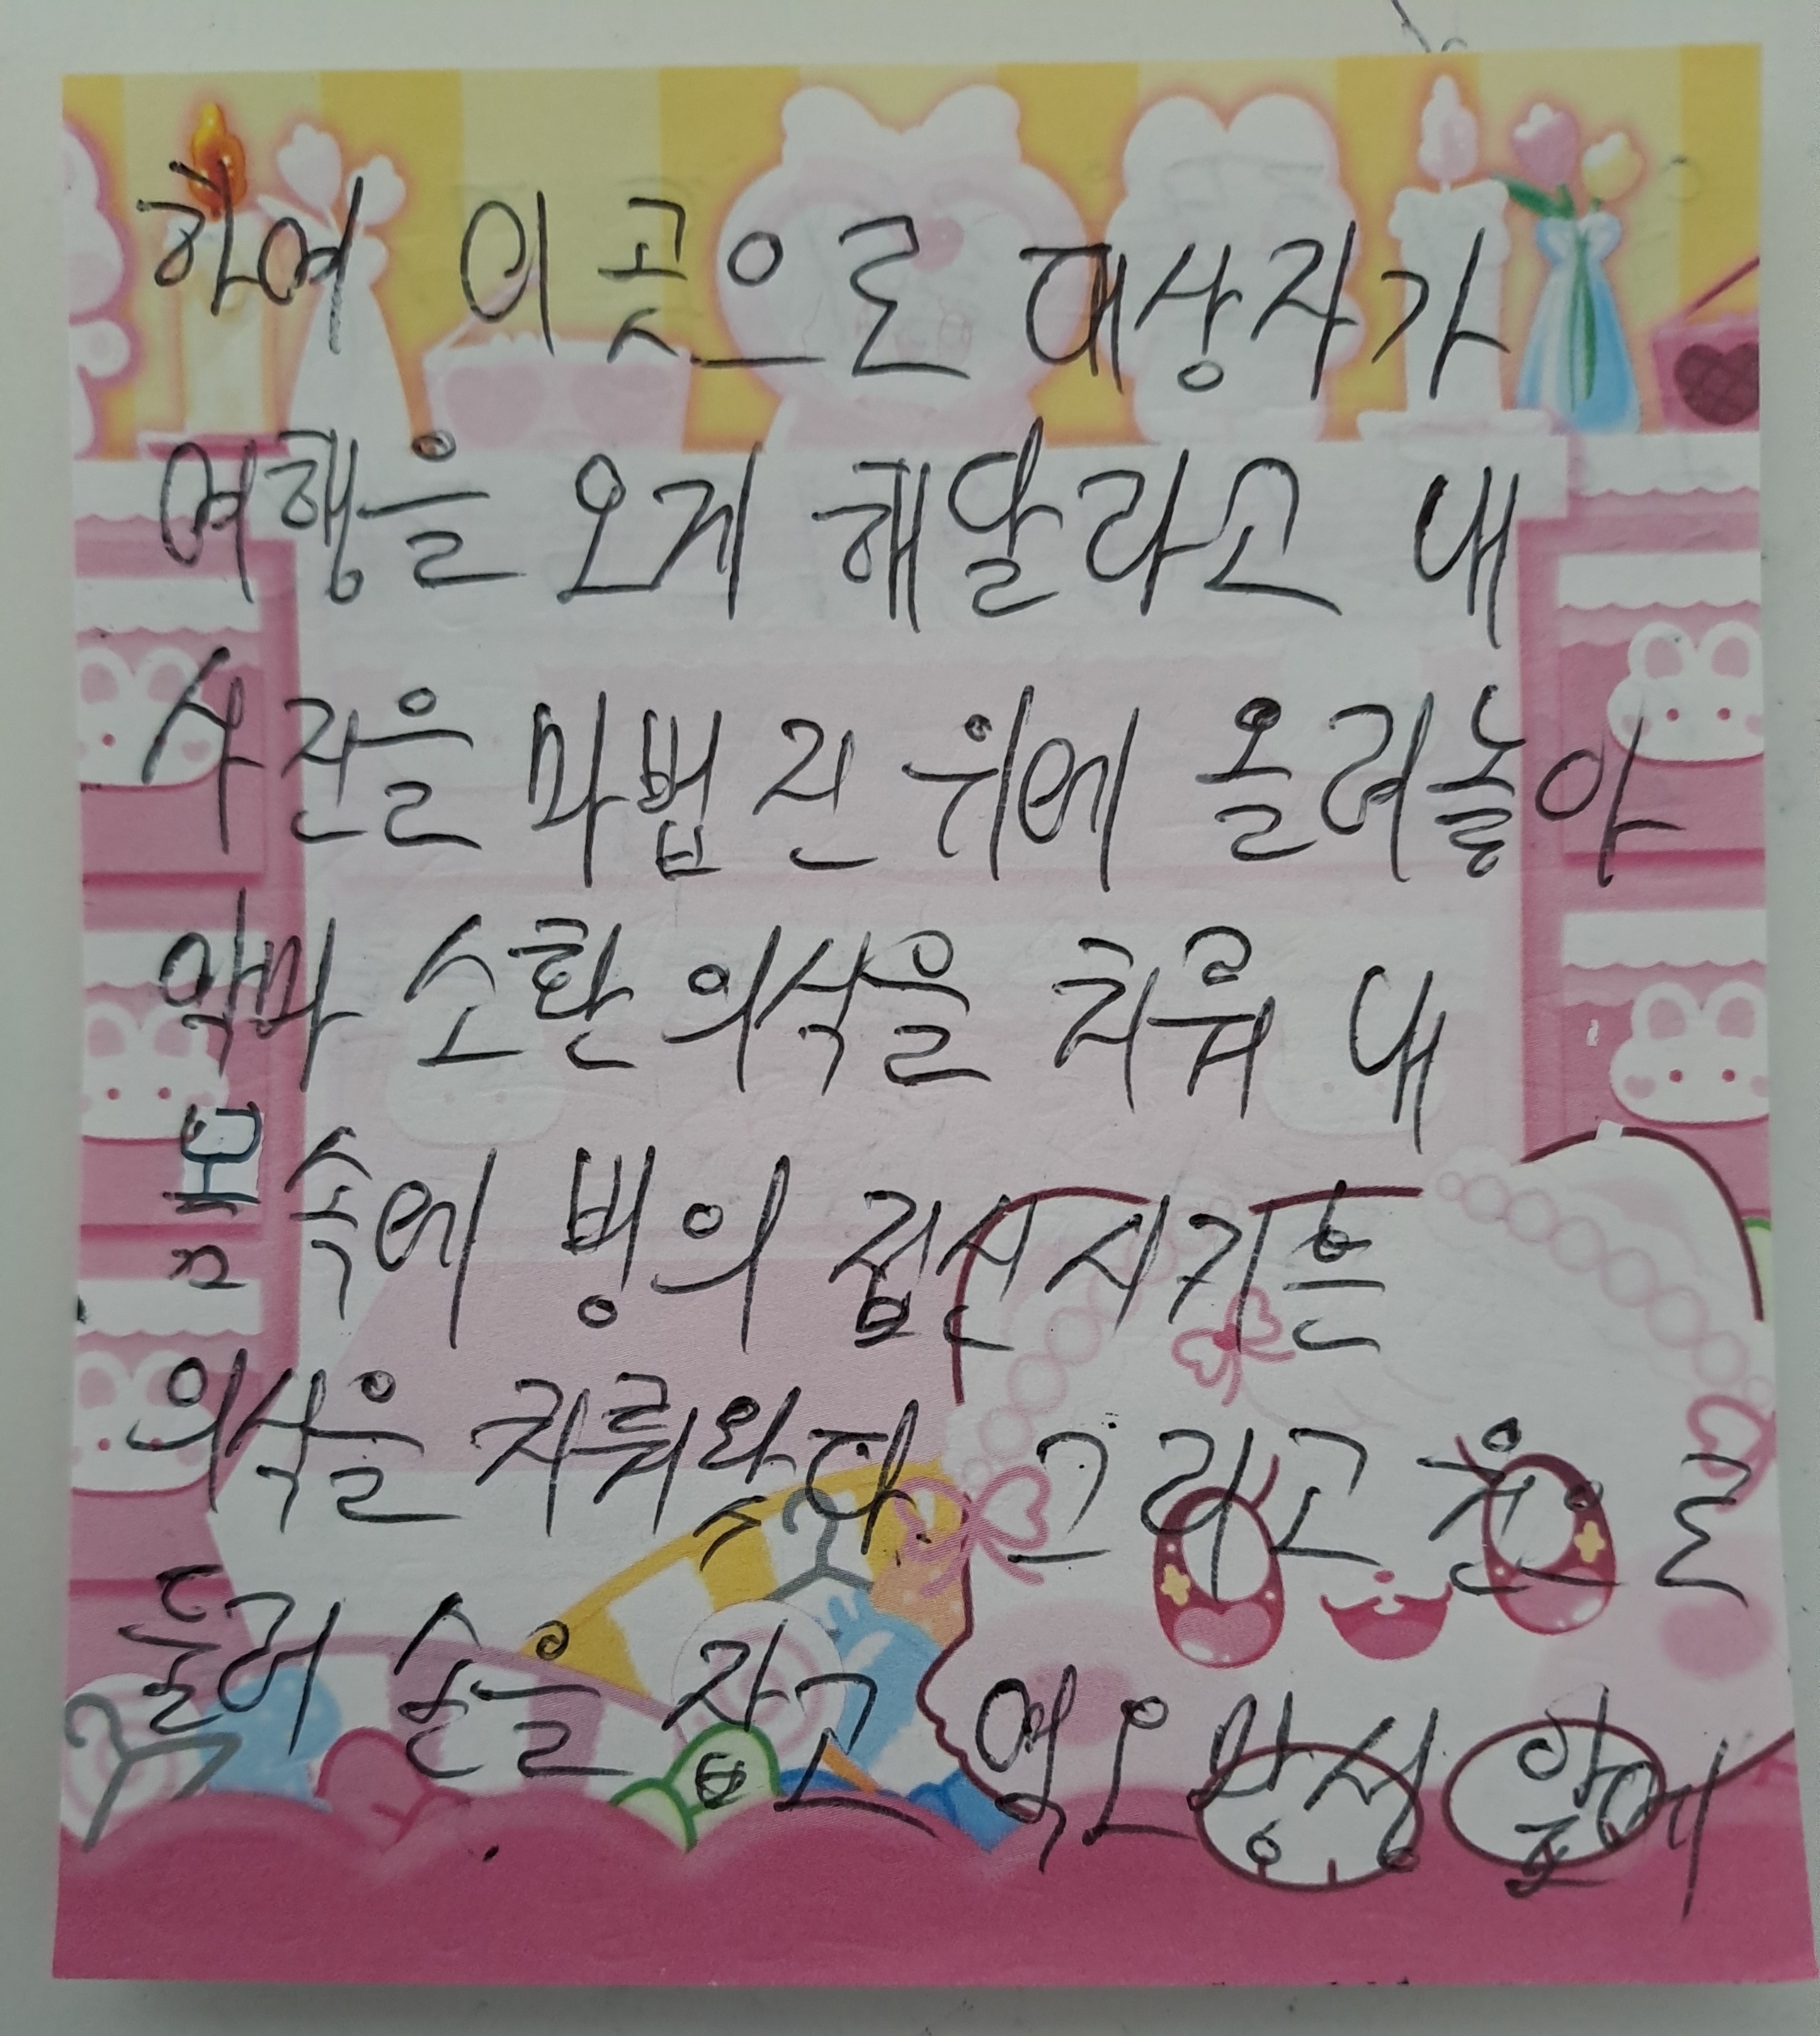 하여 이곳으로 대상자가
여행을 오게 해달라고 내
사진을 마법진 위에 올려놓아
악마 소환 의식을 치뤄 내
몸 속에 빙의 접신시키는
의식을 치뤄왔다. 그리고 원으로
둘러 손을 잡고 역오망성 앞에